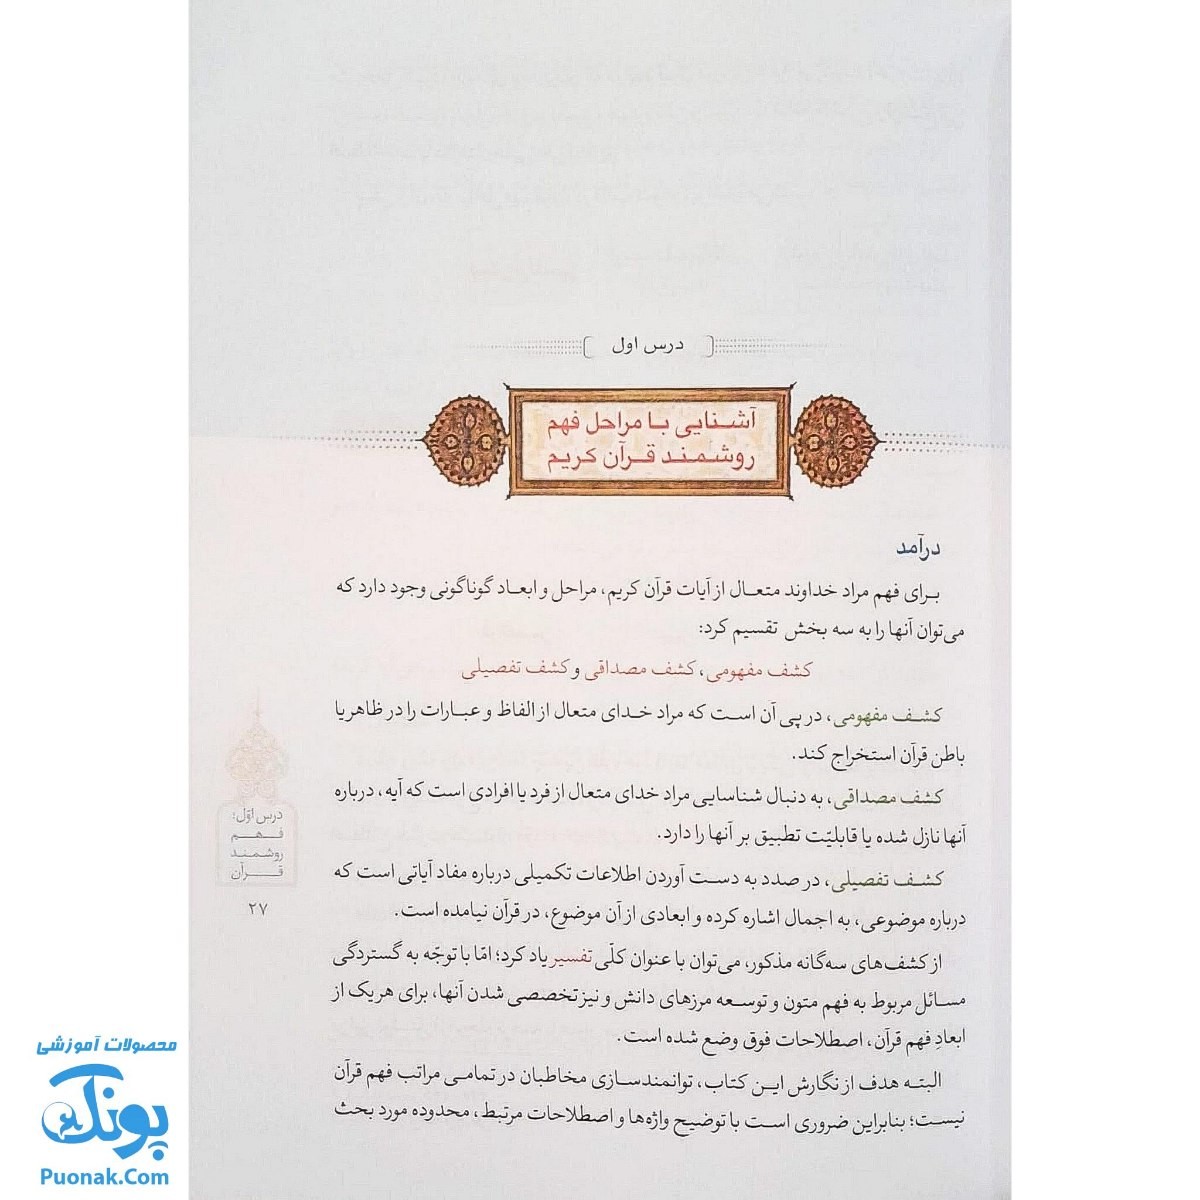 درس اول
آشنایی با مراحل فهم
روشمند قرآن کریم
درآمد
برای فهم مراد خداوند متعال از آیات قرآن کریم، مراحل و ابعاد گوناگونی وجود دارد که
می‌توان آنها را به سه بخش تقسیم کرد:
کشف مفهومی، کشف مصداقی و کشف تفصیلی
کشف مفهومی، در پی آن است که مراد خدای متعال از الفاظ و عبارات را در ظاهر یا
باطن قرآن استخراج کند.
کشف مصداقی، به دنبال شناسایی مراد خدای متعال از فرد یا افرادی است که آیه، درباره
آنها نازل شده یا قابلیّت تطبیق بر آنها را دارد.
کشف تفصیلی، در صدد به دست آوردن اطلاعات تکمیلی درباره مفاد آیاتی است که
درباره موضوعی، به اجمال اشاره کرده و ابعادی از آن موضوع، در قرآن نیامده است.
از کشف‌های سه‌گانه مذکور، می‌توان با عنوان کلّی تفسیر یاد کرد؛ امّا با توجّه به گستردگی
مسائل مربوط به فهم متون و توسعه مرزهای دانش و نیز تخصصی شدن آنها، برای هر یک از
ابعادِ فهم قرآن، اصطلاحات فوق وضع شده است.
البته هدف از نگارش این کتاب، توانمندسازی مخاطبان در تمامی مراتب فهم قرآن
نیست؛ بنابراین ضروری است با توضیح واژه‌ها و اصطلاحات مرتبط، محدوده مورد بحث
درس اوّل:
فهم
روشمند
قرآن
۲۷
محصولات آموزشی
پونک
Puonak.Com